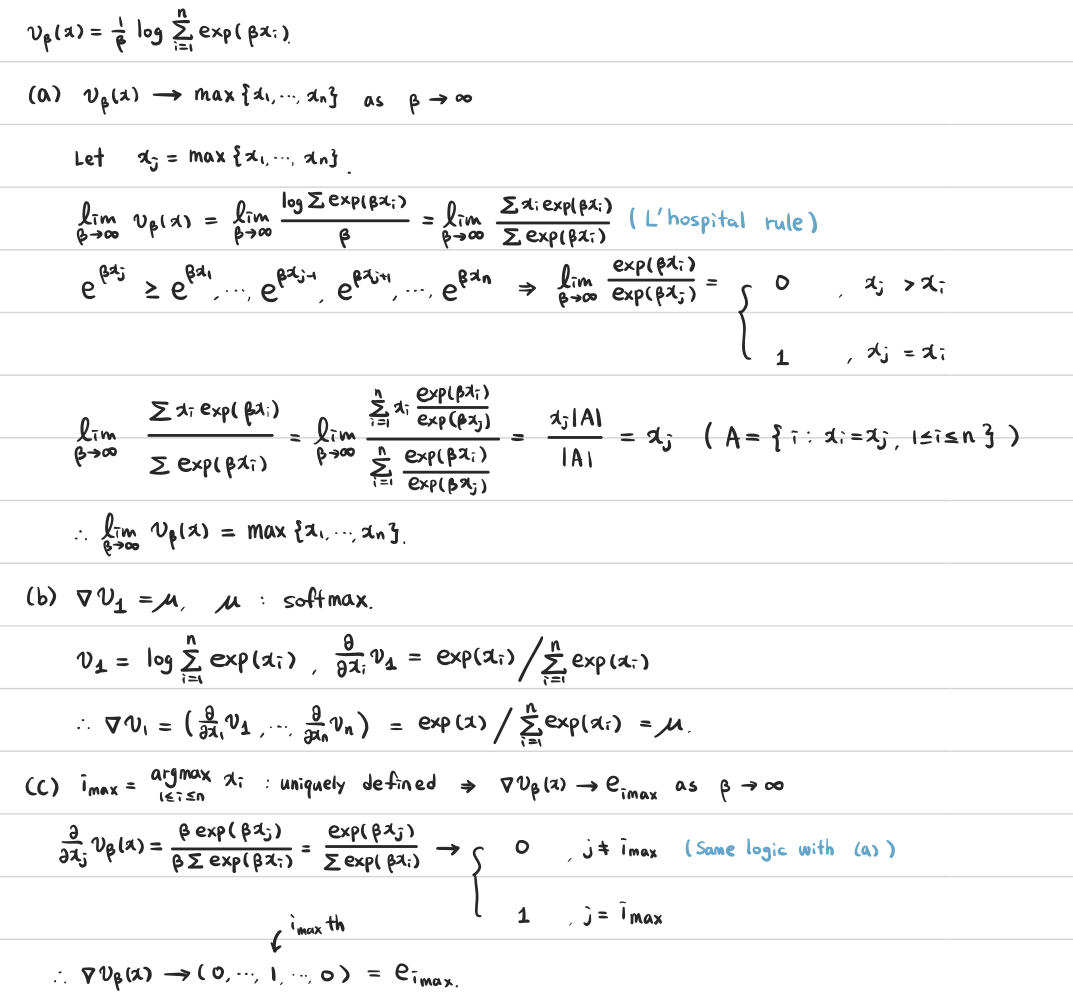 ν_β(x) = 1/β log Σ_{i=1}^{n} exp(βx_i).
(a) ν_β(x) → max{x_1, ⋯, x_n} as β → ∞
Let x_j = max{x_1, ⋯, x_n}.
lim_{β→∞} ν_β(x) = lim_{β→∞} (log Σ exp(βx_i))/β = lim_{β→∞} (Σ x_i exp(βx_i))/(Σ exp(βx_i)) (L'hospital rule)
e^{βx_j} ≥ e^{βx_1}, ⋯, e^{βx_{j-1}}, e^{βx_{j+1}}, ⋯, e^{βx_n} ⇒ lim_{β→∞} exp(βx_i)/exp(βx_j) = { 0 , x_j > x_i
1 , x_j = x_i
lim_{β→∞} (Σ x_i exp(βx_i))/(Σ exp(βx_i)) = lim_{β→∞} (Σ_{i=1}^{n} x_i exp(βx_i)/exp(βx_j))/(Σ_{i=1}^{n} exp(βx_i)/exp(βx_j)) = x_j|A|/|A| = x_j (A = {i : x_i = x_j, 1≤i≤n})
∴ lim_{β→∞} ν_β(x) = max{x_1, ⋯, x_n}.
(b) ∇ν_1 = μ, μ : softmax.
ν_1 = log Σ_{i=1}^{n} exp(x_i), ∂/∂x_i ν_1 = exp(x_i) / Σ_{i=1}^{n} exp(x_i)
∴ ∇ν_1 = (∂/∂x_1 ν_1, ⋯, ∂/∂x_n ν_n) = exp(x) / Σ_{i=1}^{n} exp(x_i) = μ.
(c) i_max = argmax_{1≤i≤n} x_i : uniquely defined ⇒ ∇ν_β(x) → e_{i_max} as β → ∞
∂/∂x_j ν_β(x) = (β exp(βx_j))/(β Σ exp(βx_i)) = exp(βx_j)/(Σ exp(βx_i)) → { 0 , j ≠ i_max (Same logic with (a))
1 , j = i_max
i_max th
∴ ∇ν_β(x) → (0, ⋯, 1, ⋯, 0) = e_{i_max}.